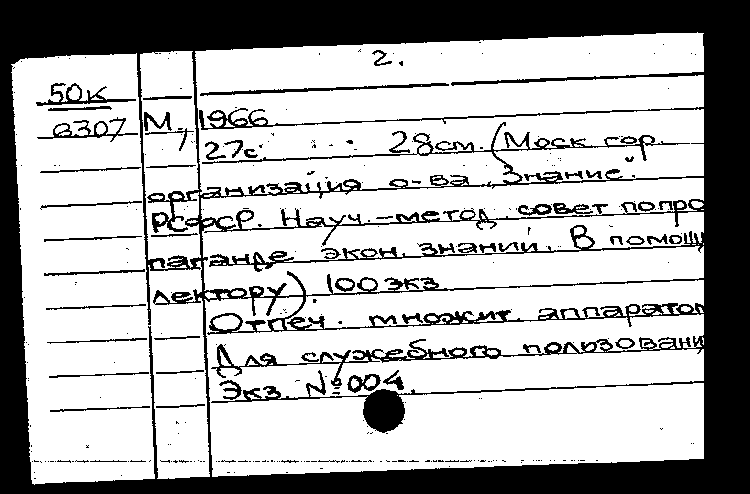 2.
50К
6307 М, 1966
27с. 28см. (Моск гор.
организация о-ва „Знание".
РСФСР. Науч.-метод. совет попро
паганде экон. знаний. В помощ
лектору). 100 экз
Отпеч. множит. аппаратом
Для служебного пользовани
Экз. №004.